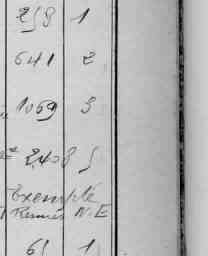 259 1
641 2
1069 3
2408 5
Exempté
Rennes N.E
65 1